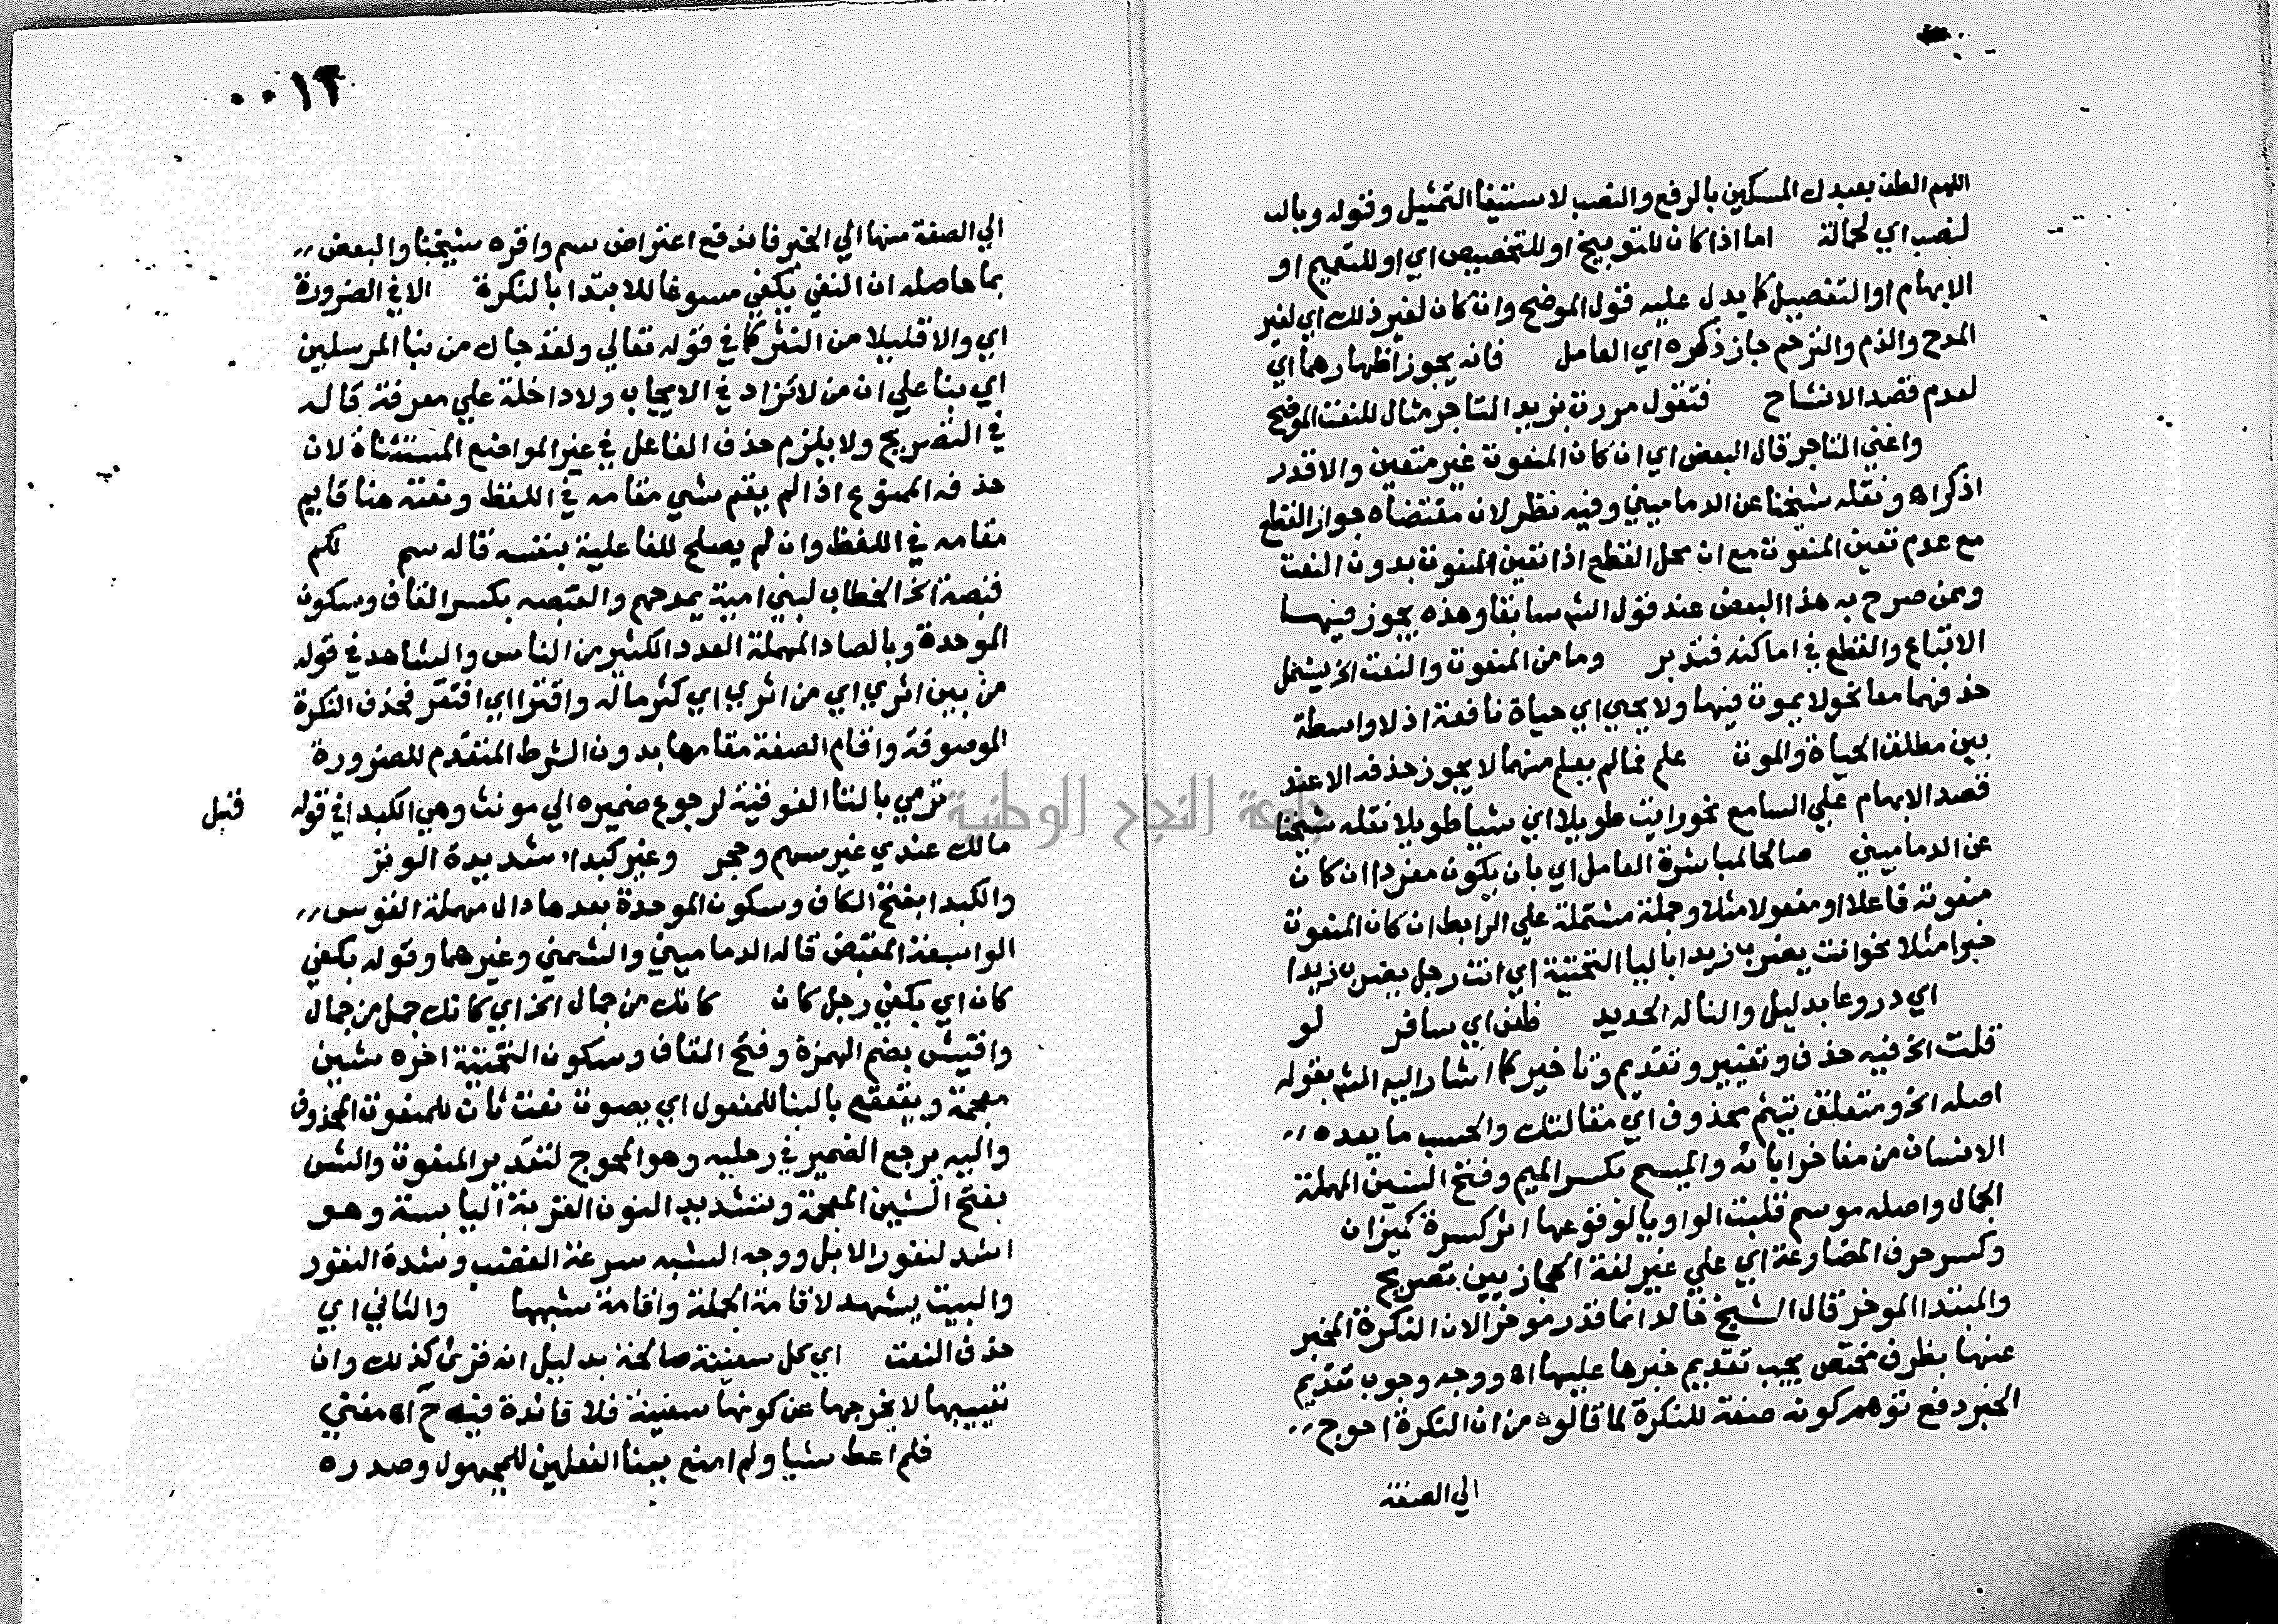 اللهم الطف بعبدك المسكين بالرفع والنصب لاستيفا التمثيل وقوله وبالـ
لنصب اي لحمالة اما اذا كان للتوبيخ او للتخصيص اي او للتعميم او
الابهام او التفصيل كما يدل عليه قول الموضح وان كان لغير ذلك اي لغير
المدح والذم والترحم جاز ذكره اي العامل فانه يجوز اظهارهما اي
لعدم قصد الانشاح فتقول مررت بزيد التاجر مثال للنعت الموضح
واعني التاجر قال البعض اي ان كان المنعوت غير متعين والا قدر
اذكر اه ونقله شيخنا عن الدماميني وفيه نظر لان مقتضاه جواز القطع
مع عدم تعين المنعوت مع ان محل القطع اذا تعين المنعوت بدون النعت
وممن صرح به هذا البعض عند قول الش سابقا وهذه يجوز فيهـا
الاتباع والقطع في اماكنه فتدبر وما من المنعوت والنعت الخ يشمل
حذفهما معا نحو لا يموت فيها ولا يحيي اي حياة نافعة اذ لا واسطة
بين مطلق الحياة والموت علم فما لم يعلم منهما لا يجوز حذفه الا عند
قصد الابهام علي السامع نحو رايت طويلا اي شيا طويلا نقله شيخنا
عن الدماميني صالحا لمباشرة العامل اي بان يكون مفردا ان كان
منعوته فاعلا او مفعولا مثلا وجملة مشتملة علي الرابط ان كان المنعوت
خبرا مثلا نحو انت يضرب زيدا باليا التحتية اي انت رجل يضرب زيدا
اي دروعا بدليل والنا له الحديد ظعن اي سافر لو
قلت الخ فيه حذف وتغيير وتقديم وتاخير كما اشار اليه الش بقوله
اصله الخ ومتعلق تيثم محذوف اي مقالتك والحسب ما يعده
الانسان من مفاخر ابائه والميسم بكسر الميم وفتح السين المهملة
الجمال واصله موسم قلبت الواو يا لوقوعها اثر كسرة كميزان
وكسر حرف المضارعة اي علي غير لغة الحجازيين بتصريح
والمبتدا الموخر قال الشيخ خالد انما قدر موخرا لان النكرة المخبر
عنها بظرف مختص يجب تقديم خبرها عليها اه ووجه وجوب تقديم
الخبر دفع توهم كونه صفة للنكرة لما قالوه من ان النكرة احوج
الي الصفة
٠٠١٢
الي الصفة منها الي الخبر فاندفع اعتراض سم واقره شيخنا والبعض
بما حاصله ان النفي يكفي مسوغا للابتدا بالنكرة الا في الضرورة
اي والا قليلا من النثر كما في قوله تعالي ولقد جاك من نبا المرسلين
اي بنا علي ان من لا تزاد في الايجاب ولا داخلة علي معرفة قاله
في التصريح ولا يلزم حذف الفاعل في غير المواضع المستثناة لان
حذفه الممنوع اذا لم يقم شي مقامه في اللفظ ونعته هنا قايم
مقامه في اللفظ وان لم يصلح للفاعلية بنفسه قاله سم لكم
قبصة الخ الخطاب لبني امية يمدحهم والقبصه بكسر القاف وسكون
الموحدة وبالصاد المهملة العدد الكثير من الناس والشاهد في قوله
من بين اثري اي من اثري اي كثر ماله واقترا اي افتقر فحذف النكرة
الموصوفة واقام الصفة مقامها بدون الشرط المتقدم للضرورة
ترمي بالتا الفوقية لرجوع ضميره الي مونث وهي الكبدا في قوله قبل
مالك عندي غير سهم وحجر وغير كبدا شديدة الوتر
والكبدا بفتح الكاف وسكون الموحدة بعدها دال مهملة القوس
الواسعة المقبض قاله الدماميني والشمني وغيرهما وقوله بكفي
كان اي بكفي رجل كان كانك من جمال الخ اي كانك جمل من جمال
واقيش بضم الهمزة وفتح القاف وسكون التحتية اخره شين
معجمة ويقعقع بالبنا للمفعول اي يصوت نعت ثان للمنعوت المحذوف
واليه يرجع الضمير في رجليه وهو المحوج لتقدير المنعوت والشن
بفتح الشين المعجمة وتشديد النون القربة اليابسة وهو
اشد لنفور الابل ووجه الشبه سرعة الغضب وشدة النفور
والبيت يشهد لاقامة الجملة واقامة شبهها والثاني اي
حذف النعت اي كل سفينة صالحة بدليل انه قرئ كذلك وان
تعييبها لا يخرجها عن كونها سفينة فلا فائدة فيه ح اه مغني
فلم اعط شيا ولم امنع ببنا الفعلين للمجهول وصدره